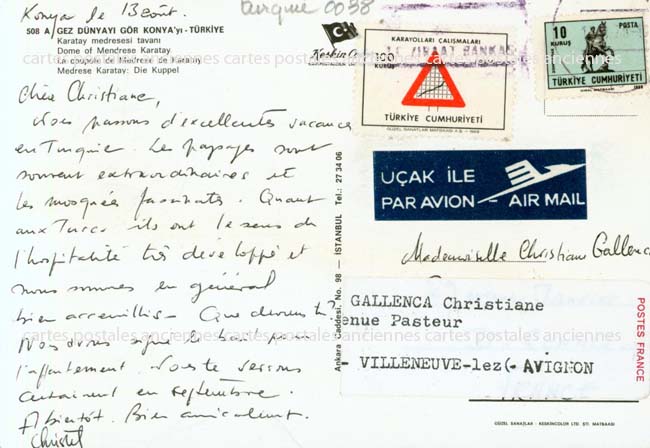 Konya le 13 Août.
turquie 0038
508 A/ GEZ DÜNYAYI GÖR KONYA'yı - TÜRKİYE
Karatay medresesi tavanı
Dome of Mendrese Karatay
La coupole de Medrese de Karatay
Medrese Karatay: Die Kuppel
Keskin Co
Chère Christiane,
Nous passons d'excellentes vacances
en Turquie. Les paysages sont
souvent extraordinaires et
les mosquées fascinantes. Quant
aux Turcs ils ont le sens de
l'hospitalité très développé et
nous sommes en général
bien accueillis. Que deviens-tu?
Nous avons signé le bail pour
l'appartement. Nous te verrons
certainement en septembre.
A bientôt. Bien amicalement.
Christel
Ankara Caddesi, No. 98 — İSTANBUL Tel.: 27 34 06
KARAYOLLARI ÇALIŞMALARI
T.C. ZİRAAT BANKASI
100
KURUŞ
TÜRKİYE CUMHURİYETİ
GÜZEL SANATLAR MATBAASI A.S. - 1969
10
KURUŞ
POSTA
TÜRKİYE CUMHURİYETİ
UÇAK İLE
PAR AVION - AIR MAIL
Mademoiselle Christiane Gallenca
GALLENCA Christiane
enue Pasteur
VILLENEUVE-lez(- AVIGNON
POSTES FRANCE
GÜZEL SANATLAR - KESKİNCOLOR LTD. ŞTİ. MATBAASI
cartes postales anciennes cartes postales anciennes cartes postales anciennes
cartes postales anciennes cartes postales anciennes cartes postales anciennes